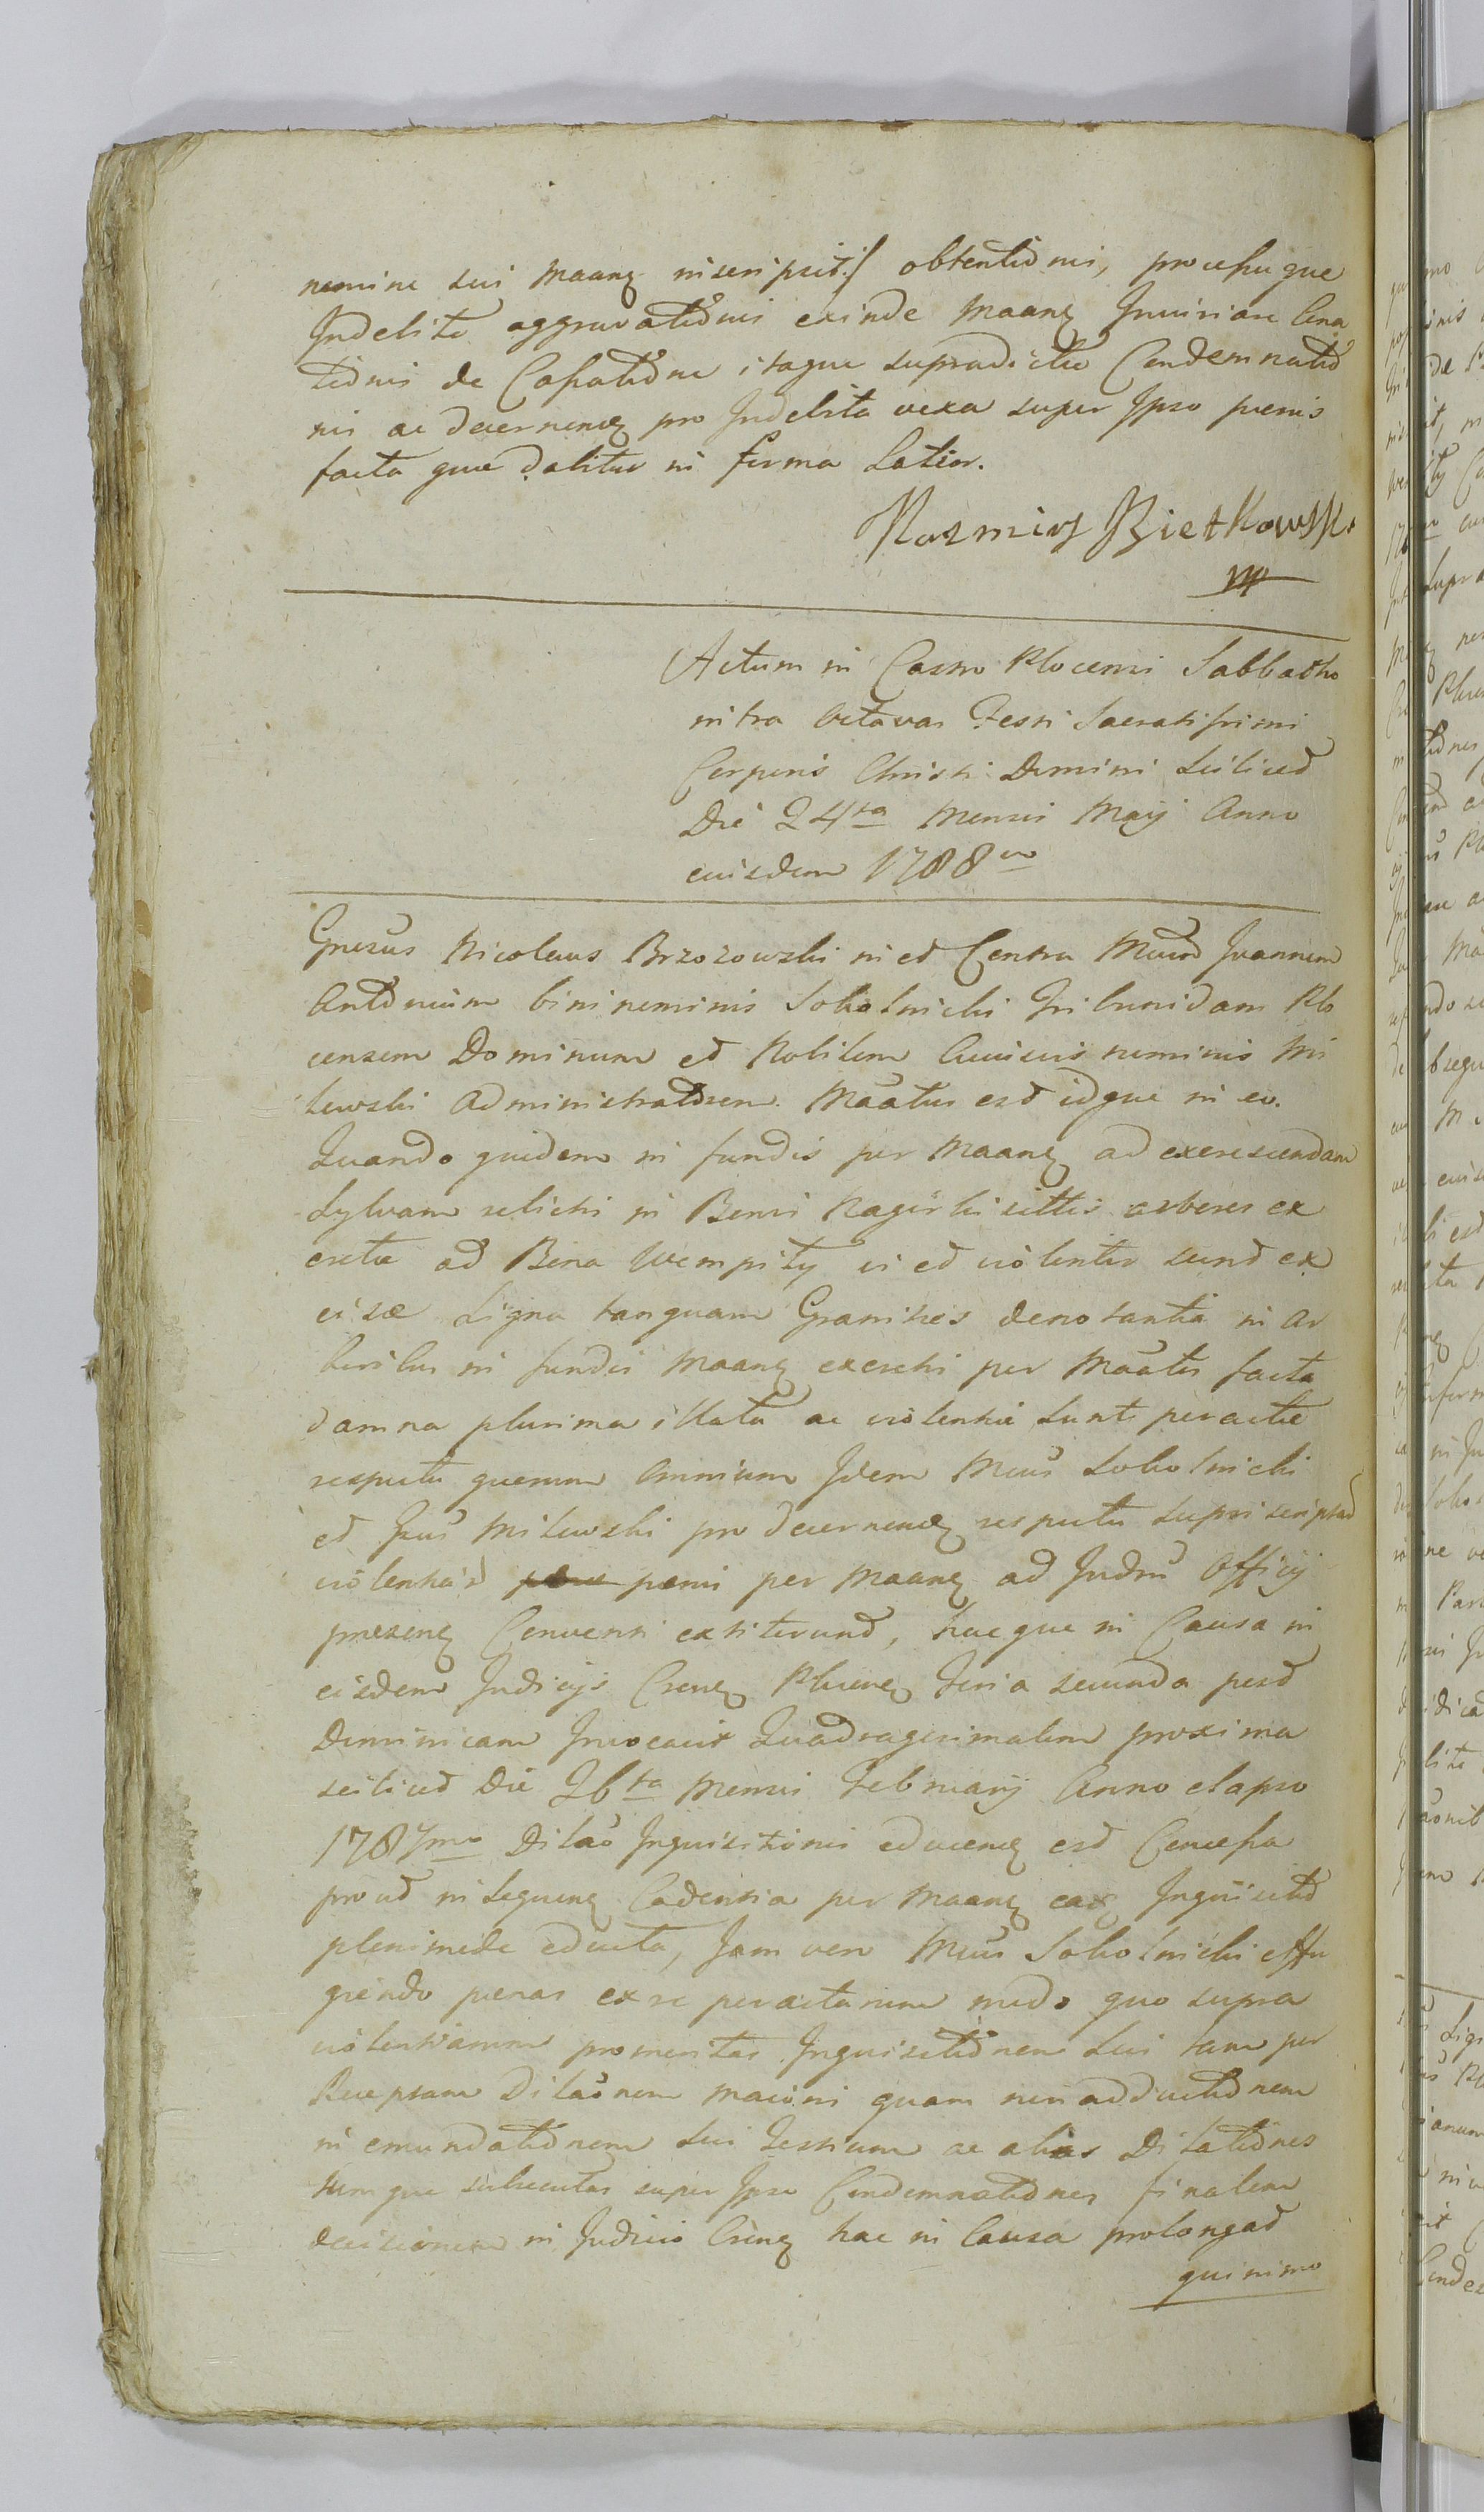 nomine sui Maanę inscripsit:/ obtentionis, processuque
Indebite aggravationis exinde Maanę Iniuriare Cona
tionis de Cassatione itaque supradictae Condemnatio
nis ac decernenę pro Indebita vexa super Ipso poenis
facta quae dabitur in forma Latior.
Kazmirz Bietkowski
mp
Actum in Castro Plocensi Sabbatho
intra octavas Festi Sacratissimi
Corporis Christi Domini Scilicet
Die 24ta Mensis Maij Anno
eiusdem 1788vo
Gnesus Nicolaus Brzozowski in et Contra Mcum Joannem
Antonium bini nominis Sokolnicki Tribunidam Plo
censem Dominum et Nobilem Cuiusvis nominis Mi
lewski Administratorem. Maatus est idque in eo.
Quando quidem in fundis per Maanę ad excrescendam
Sylvam relicti in Bonis Nagórki sittis arbores ex
cretae ad Bona Wempiły vi et violenter sunt ex
cisae Signa tanquam Granities denotantia in Ar
boribus in fundis Maanę excreti per Maatus facta
damna plurima illata ac violentiae Sunt peractae
respectu quorum omnium Idem Mcus Sokolnicki
et Ipus Milewski pro decernenę respectu Supra scriptarum
violentiarum poenis per Maanę ad Judm Officij
praesenę Conventi extiterunt, hacque in Causa in
eisdem Judicijs Crenę Plocenę Feria secunda post
Dominicam Invocavit Quadragesimalem proxima
scilicet Die 26ta Mensis Februarij Anno elapso
1787mo Dilao Inquisitionis educenę est Concessa
prout in Sequenę Cadentia per Maanę eaż Inquisitio
plenimode educta, Jam vero Mcus Sokolnicki effu
giendo poenas ex re peractarum modo quo supra
violentiarum promeritas Inquisitionem Sui tam per
Receptam Dilaonem Maioris quam non adductionem
in emundationem Sui Testium ac alias Dilationes
tum que subsecutas super Ipso Condemnationes finalem
decisionem in Judicio Crenę hac in Causa prolongat
quinimo